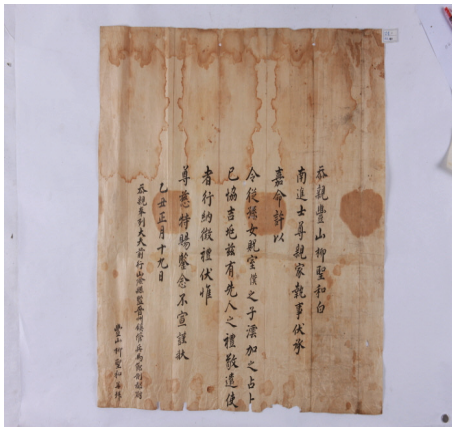 忝親豊山柳聖和白
南進士尊親家執事伏承
嘉命許以
令從孫女親室僕之子澐加之占卜
已恊吉兆玆有先人之禮敬遣使
者行納徵禮伏惟
尊慈特賜鑒念不宣謹狀
乙丑正月十九日
忝親奉列大夫前行山陰縣監晉州鎮管兵馬節制都尉
豊山柳聖和再拜